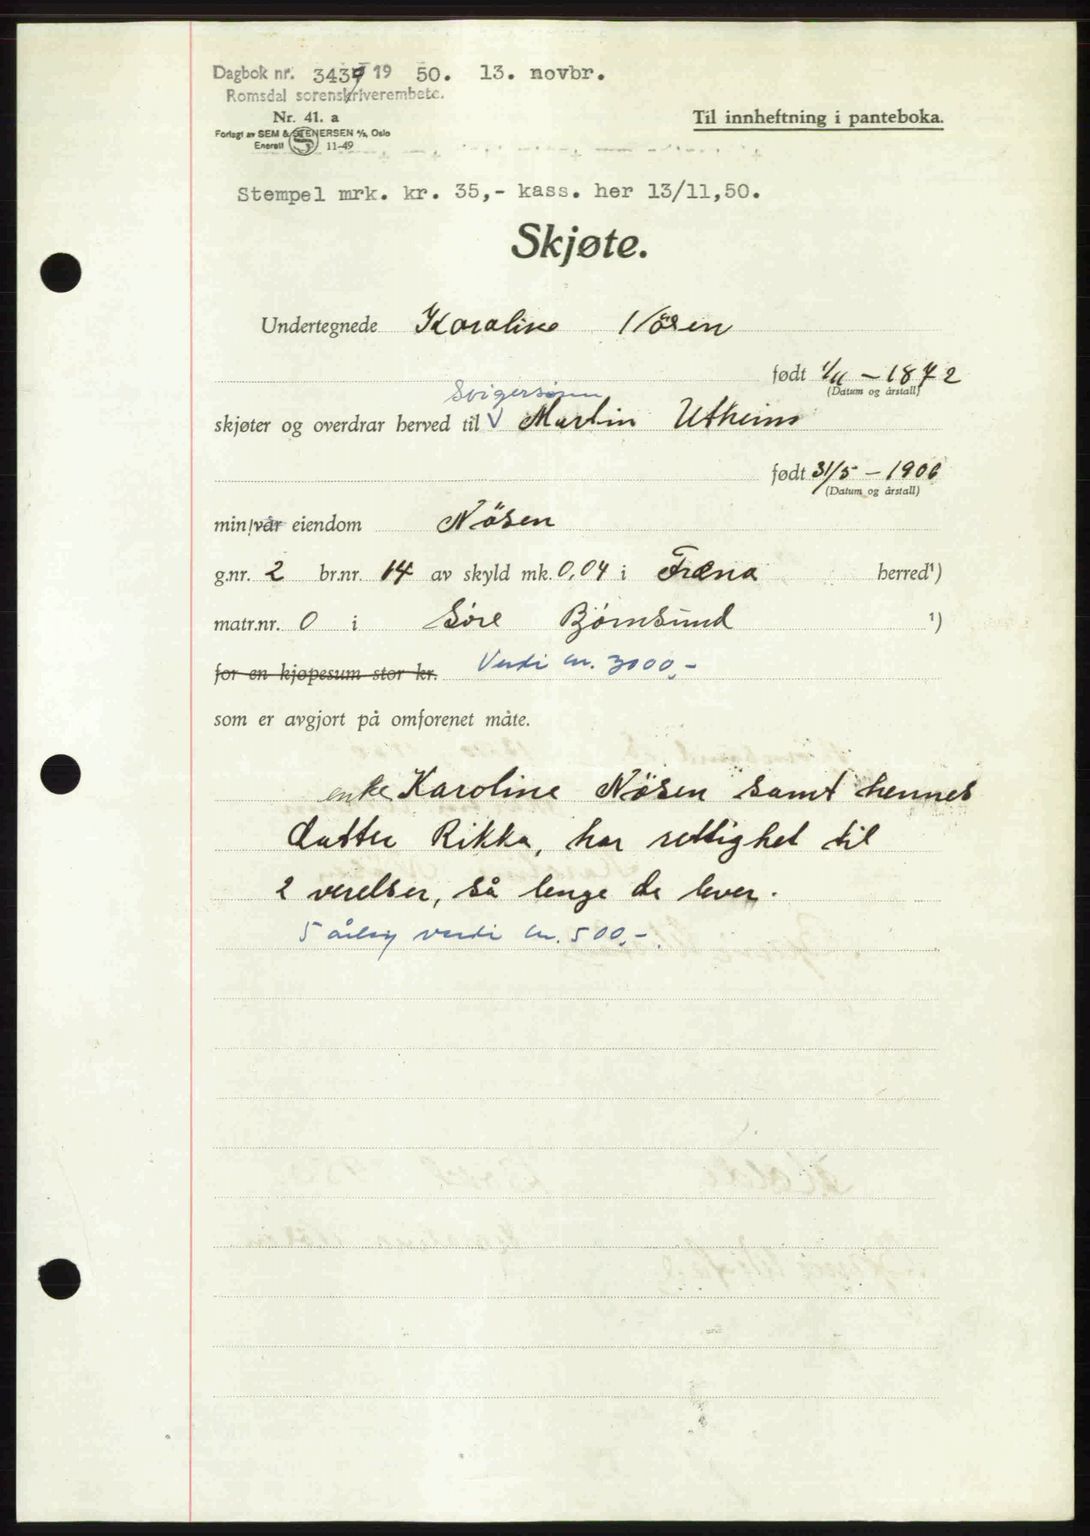 Dagbok nr. 3437 19 50. 13. novbr.
Romsdal sorenskriverembete.
Nr. 41. a
Forlagt av SEM & STENERSEN A/S, Oslo
Enerett 11-49
Til innheftning i panteboka.
Stempel mrk. kr. 35,- kass. her 13/11,50.
Skjøte.
Undertegnede Karoline Nösen
født 1/11 - 1872
(Datum og årstall)
Svigersønn
skjøter og overdrar herved til V Martin Utheim
født 31/5 - 1906
(Datum og årstall)
min/vår eiendom Nösen
g.nr. 2 br.nr. 14 av skyld mk. 0,04 i Fræna herred¹)
matr.nr. 0 i Söre Bjørnsund ¹)
for en kjøpesum stor kr. Verdi kr. 3000,-
som er avgjort på omforenet måte.
enke Karoline Nösen samt hennes
datter Rikka, har rettighet til
2 værelser, så lenge de lever.
5 årlig verdi kr. 500,-